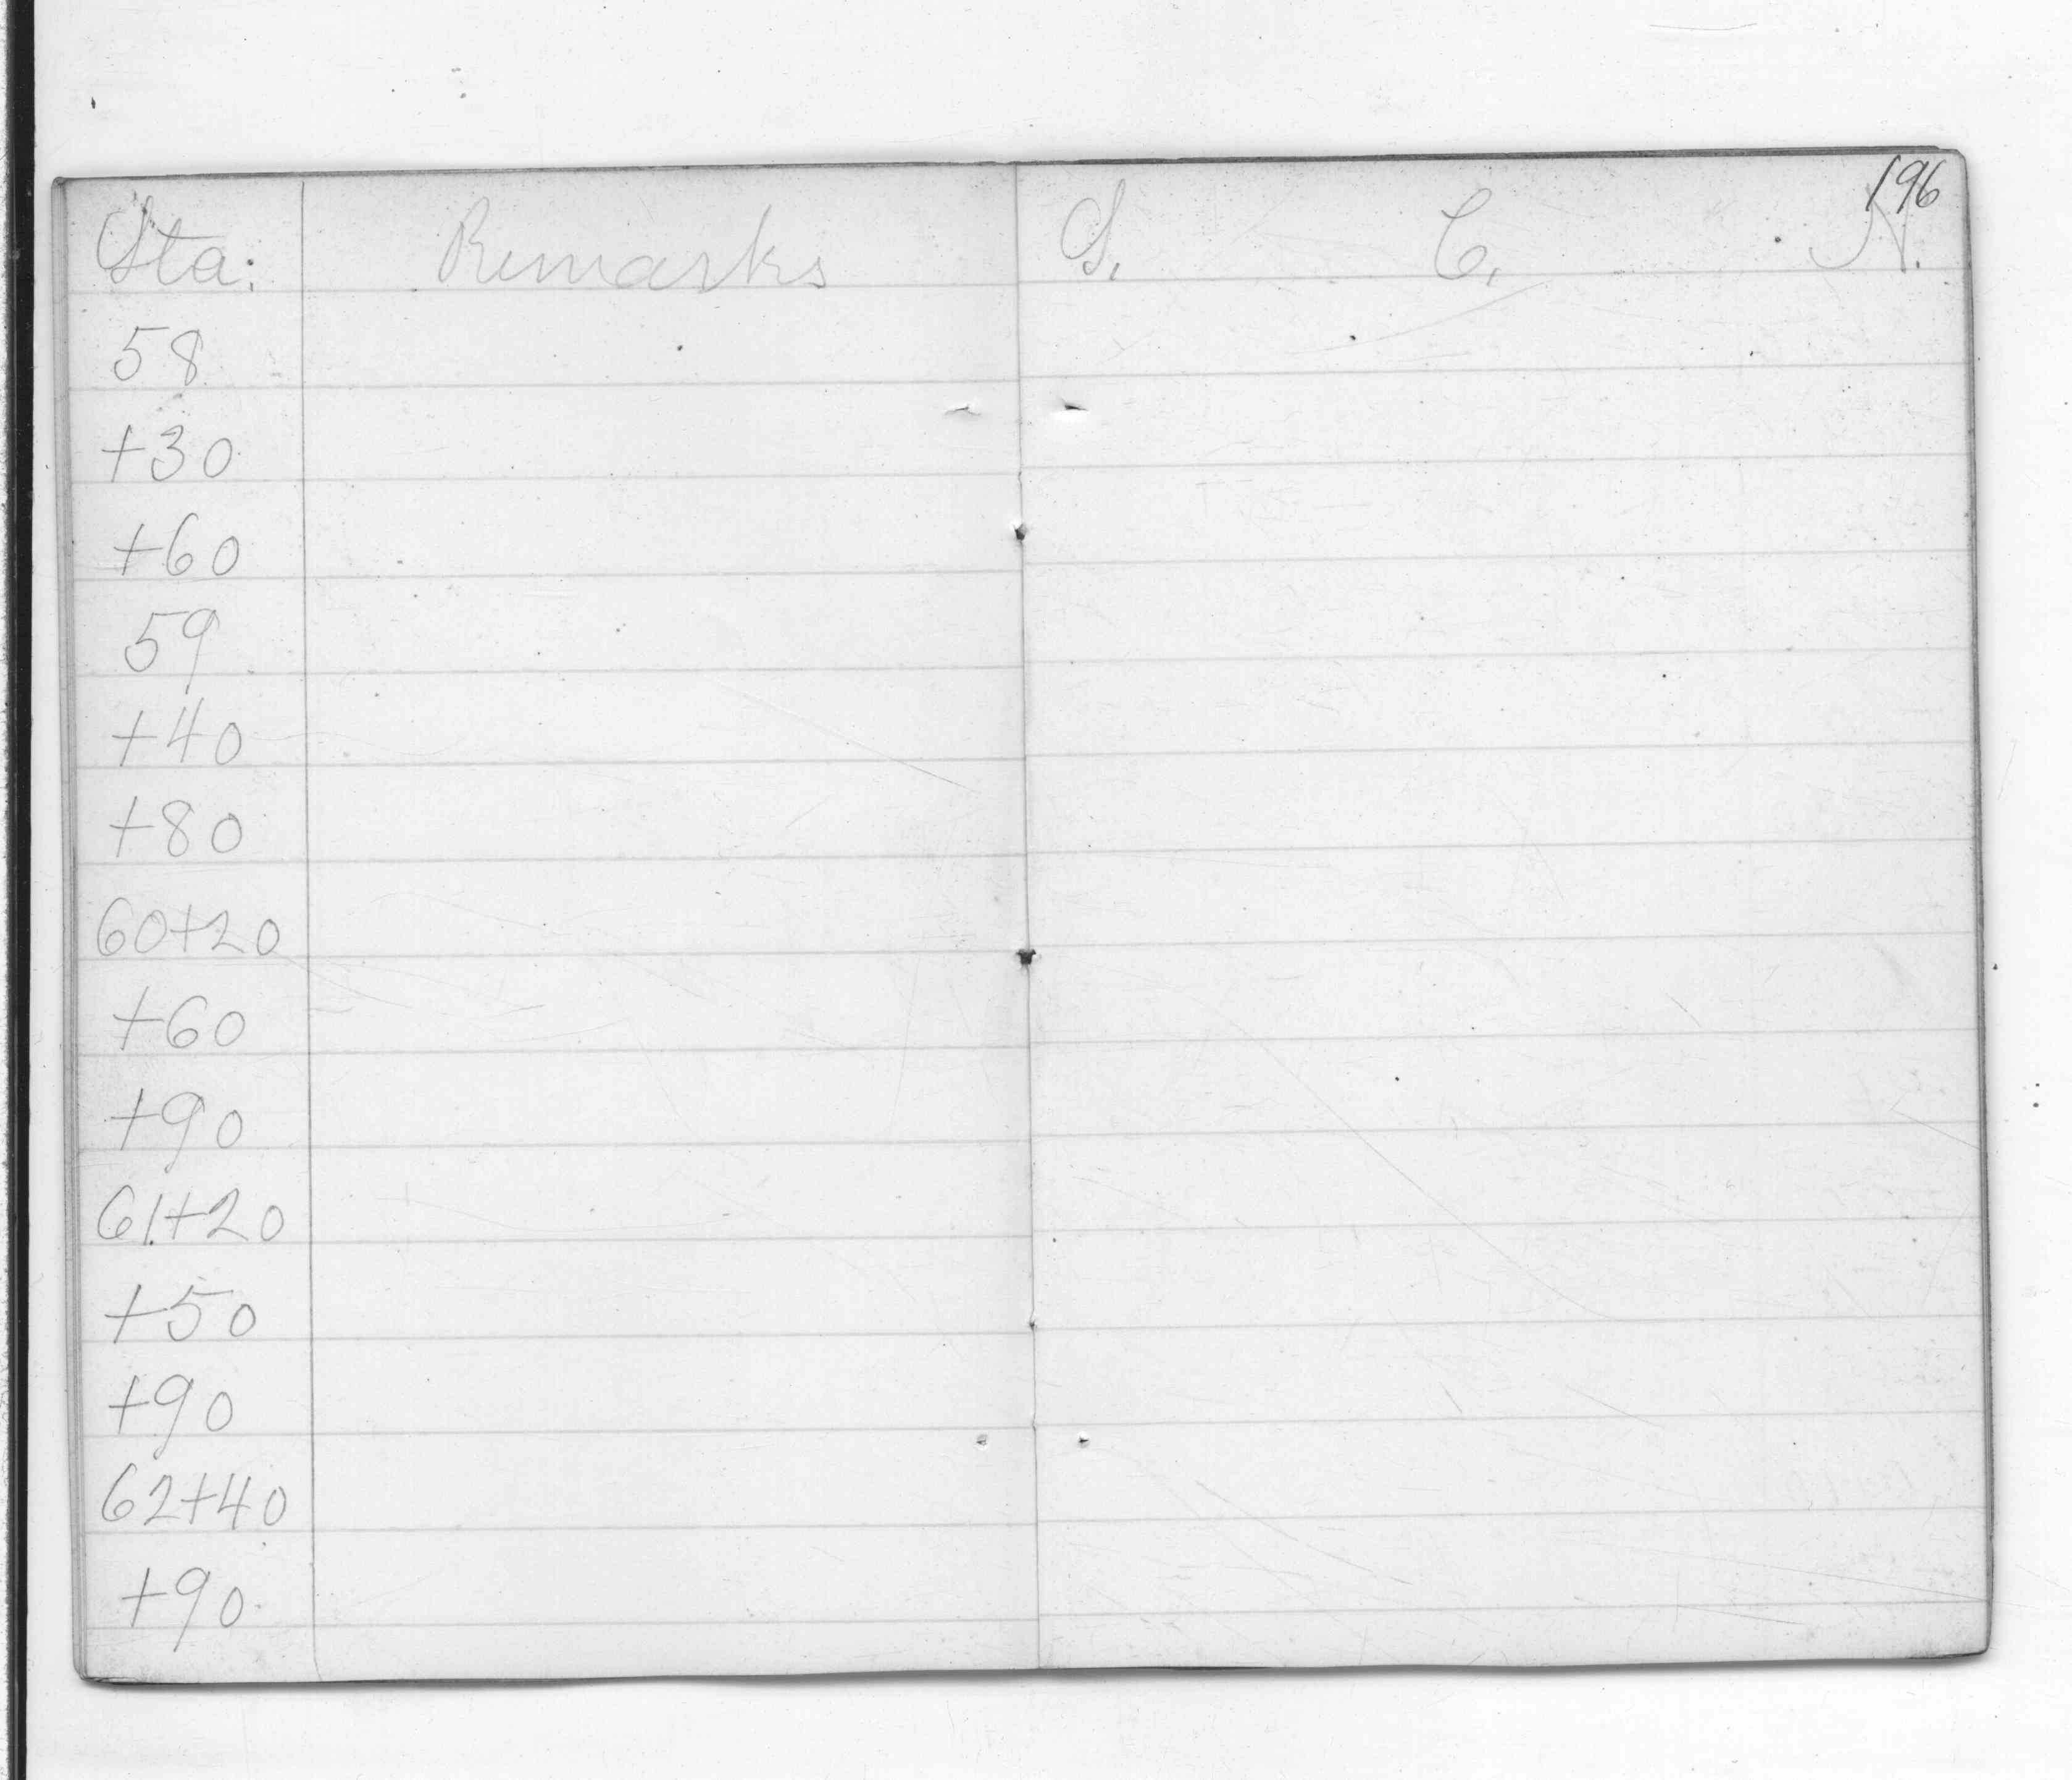 196
Sta: Remarks S. C. N.
58
+30
+60
59
+40
+80
60+20
+60
+90
61+20
+50
+90
62+40
+90